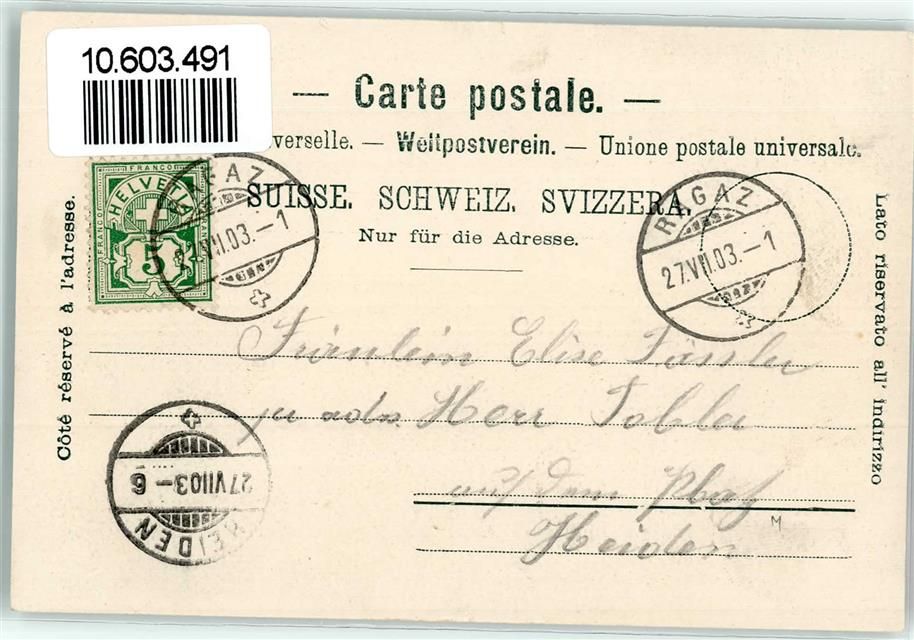 10.603.491
— Carte postale. —
verselle. — Weltpostverein. — Unione postale universale.
SUISSE. SCHWEIZ. SVIZZERA.
Nur für die Adresse.
Côté réservé à l'adresse.
Lato riservato all' indirizzo
FRANCO
FRANCO
FRANCO
HELVETIA
5
RAGAZ
27.VII.03.-1
RAGAZ
27.VII.03.-1
Fräulein Elise
Herr Tobler
auf dem Platz
Heiden
M
27 VII 03-6
HEIDEN